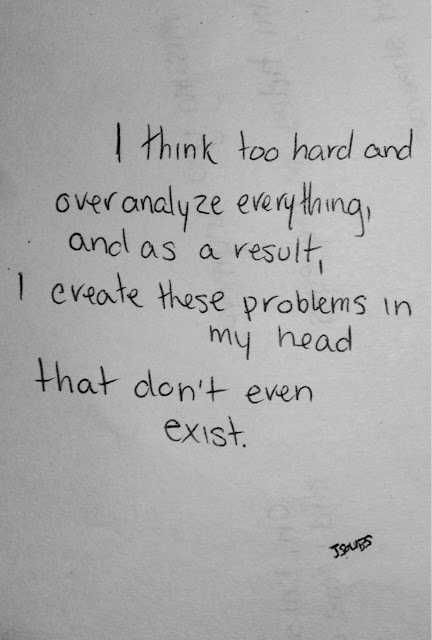 I think too hard and
overanalyze everything,
and as a result,
I create these problems in
my head
that don't even
exist.